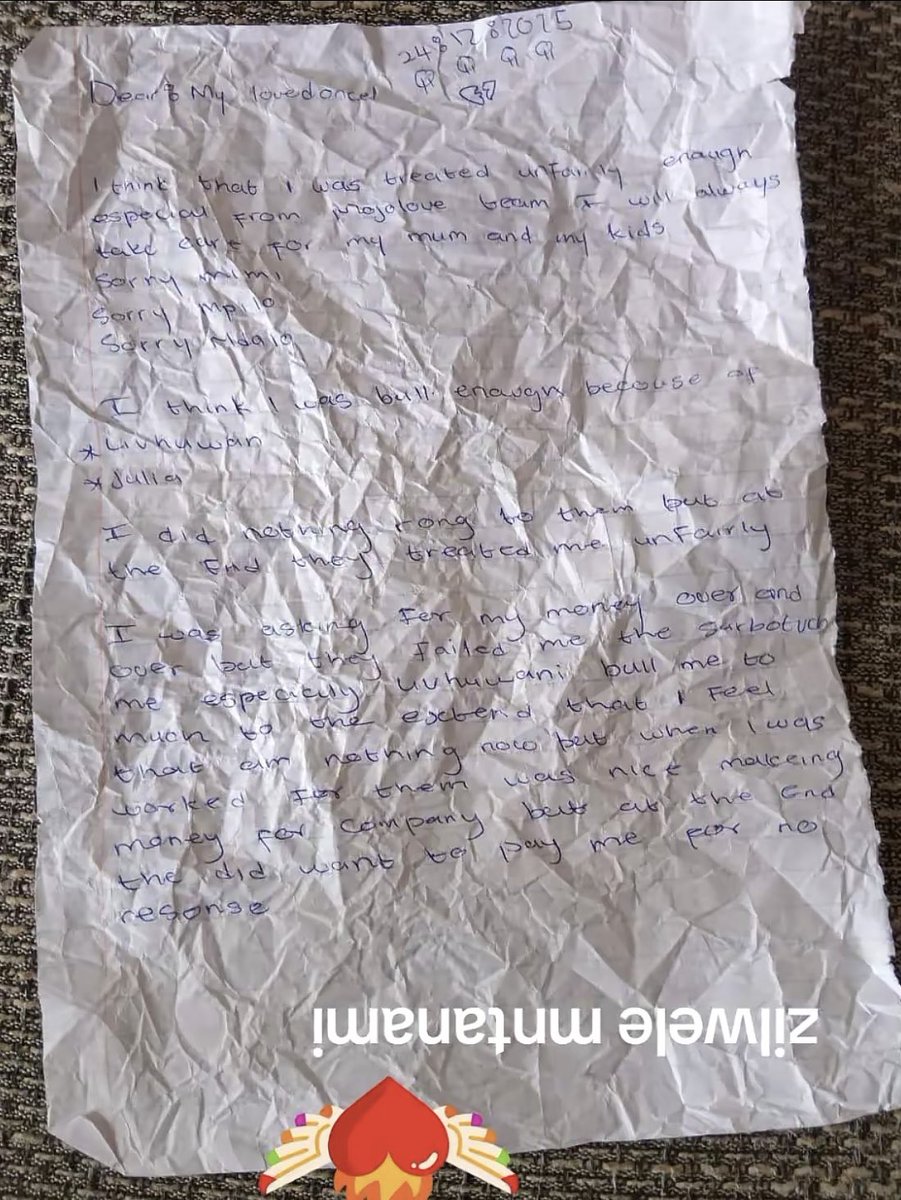 24 12 82025
Dear My lovedonce
I think that I was treated unfairly enaugh
especial from mojolove team I will always
take care for my mum and my kids
Sorry mimi
Sorry Mpilo
Sorry
I think I was bull enaugh because of
* Luvhuwan
* Julia
I did nothing rong to them but at
the End they treated me unfairly
I was asking For my money over and
over but they failed me the surbotuch
me especially Luvhuwani bull me to
much to the extend that I Feel
that am nothing now but when I was
worked for them was nice making
money for company but at the End
the did want to pay me for no
resonse
zilwele mntanami